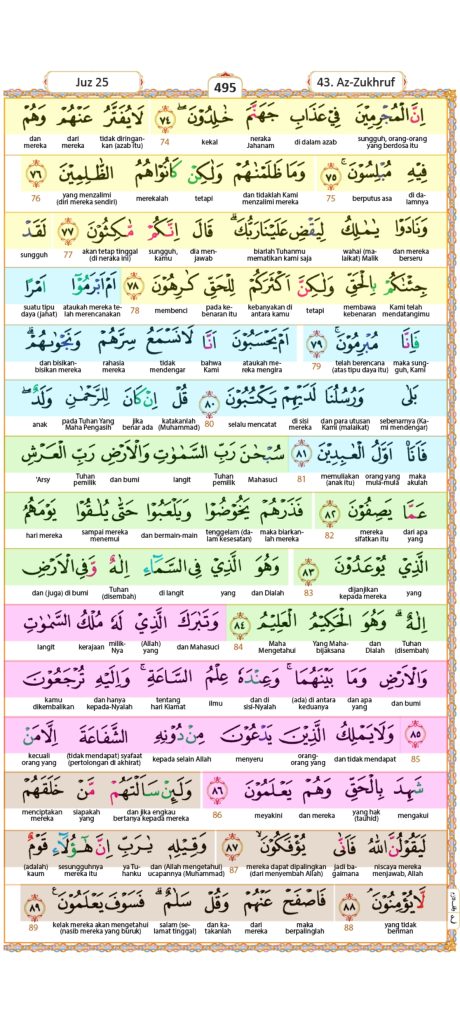 Juz 25
495
43. Az-Zukhruf
إِنَّ الْمُجْرِمِيْنَ فِيْ عَذَابِ جَهَنَّمَ خٰلِدُوْنَۖ ٧٤ لَا يُفَتَّرُ عَنْهُمْ وَهُمْ
sungguh, orang-orang yang berdosa itu di dalam azab neraka Jahanam kekal 74 tidak diringankan (azab itu) dari mereka dan mereka
فِيْهِ مُبْلِسُوْنَۚ ٧٥ وَمَا ظَلَمْنٰهُمْ وَلٰكِنْ كَانُوْا هُمُ الظّٰلِمِيْنَ ٧٦
di dalamnya berputus asa 75 dan tidaklah Kami menzalimi mereka tetapi merekalah yang menzalimi (diri mereka sendiri) 76
وَنَادَوْا يٰمٰلِكُ لِيَقْضِ عَلَيْنَا رَبُّكَۗ قَالَ اِنَّكُمْ مّٰكِثُوْنَ ٧٧ لَقَدْ
dan mereka berseru wahai (malaikat) Malik biarlah Tuhanmu mematikan kami saja dia menjawab sungguh, kamu akan tetap tinggal (di neraka ini) 77 sungguh
جِئْنٰكُمْ بِالْحَقِّ وَلٰكِنَّ اَكْثَرَكُمْ لِلْحَقِّ كٰرِهُوْنَ ٧٨ اَمْ اَبْرَمُوْٓا اَمْرًا
Kami telah mendatangimu membawa kebenaran tetapi kebanyakan di antara kamu pada kebenaran itu membenci 78 ataukah mereka telah merencanakan suatu tipu daya (jahat)
فَاِنَّا مُبْرِمُوْنَۚ ٧٩ اَمْ يَحْسَبُوْنَ اَنَّا لَا نَسْمَعُ سِرَّهُمْ وَنَجْوٰىهُمْۗ
maka sungguh, Kami telah berencana (atas tipu daya itu) 79 ataukah mereka mengira bahwa Kami tidak mendengar rahasia mereka dan bisikan-bisikan mereka
بَلٰى وَرُسُلُنَا لَدَيْهِمْ يَكْتُبُوْنَ ٨٠ قُلْ اِنْ كَانَ لِلرَّحْمٰنِ وَلَدٌۖ
sebenarnya (Kami mendengar) dan para utusan Kami (malaikat) di sisi mereka selalu mencatat 80 katakanlah (Muhammad) jika benar ada pada Tuhan Yang Maha Pengasih anak
فَاَنَا۠ اَوَّلُ الْعٰبِدِيْنَ ٨١ سُبْحٰنَ رَبِّ السَّمٰوٰتِ وَالْاَرْضِ رَبِّ الْعَرْشِ
maka akulah orang yang mula-mula memuliakan (anak itu) 81 Mahasuci Tuhan pemilik langit dan bumi Tuhan pemilik 'Arsy
عَمَّا يَصِفُوْنَ ٨٢ فَذَرْهُمْ يَخُوْضُوْا وَيَلْعَبُوْا حَتّٰى يُلٰقُوْا يَوْمَهُمُ
dari apa yang mereka sifatkan itu 82 maka biarkanlah mereka tenggelam (dalam kesesatan) dan bermain-main sampai mereka menemui hari mereka
الَّذِيْ يُوْعَدُوْنَ ٨٣ وَهُوَ الَّذِيْ فِى السَّمَاۤءِ اِلٰهٌ وَّفِى الْاَرْضِ
yang dijanjikan kepada mereka 83 dan Dialah yang di langit Tuhan (disembah) dan (juga) di bumi
اِلٰهٌۗ وَهُوَ الْحَكِيْمُ الْعَلِيْمُ ٨٤ وَتَبٰرَكَ الَّذِيْ لَهٗ مُلْكُ السَّمٰوٰتِ
Tuhan (disembah) dan Dialah Yang Mahabijaksana Maha Mengetahui 84 dan Mahasuci (Allah) yang milik-Nya kerajaan langit
وَالْاَرْضِ وَمَا بَيْنَهُمَاۚ وَعِنْدَهٗ عِلْمُ السَّاعَةِۚ وَاِلَيْهِ تُرْجَعُوْنَ
dan bumi dan apa yang (ada) di antara keduanya dan di sisi-Nyalah ilmu tentang hari Kiamat dan hanya kepada-Nyalah kamu dikembalikan
٨٥ وَلَا يَمْلِكُ الَّذِيْنَ يَدْعُوْنَ مِنْ دُوْنِهِ الشَّفَاعَةَ اِلَّا مَنْ
85 dan tidak mendapat orang-orang yang menyeru kepada selain Allah (tidak mendapat) syafaat (pertolongan di akhirat) kecuali orang yang
شَهِدَ بِالْحَقِّ وَهُمْ يَعْلَمُوْنَ ٨٦ وَلَىِٕنْ سَاَلْتَهُمْ مَّنْ خَلَقَهُمْ
mengakui yang hak (tauhid) dan mereka meyakini 86 dan jika engkau bertanya kepada mereka siapakah yang menciptakan mereka
لَيَقُوْلُنَّ اللّٰهُ فَاَنّٰى يُؤْفَكُوْنَۙ ٨٧ وَقِيْلِهٖ يٰرَبِّ اِنَّ هٰٓؤُلَاۤءِ قَوْمٌ
niscaya mereka menjawab, Allah jadi bagaimana mereka dapat dipalingkan (dari menyembah Allah) 87 dan (Allah mengetahui) ucapannya (Muhammad) ya Tuhanku sesungguhnya mereka itu (adalah) kaum
لَّا يُؤْمِنُوْنَۘ ٨٨ فَاصْفَحْ عَنْهُمْ وَقُلْ سَلٰمٌۗ فَسَوْفَ يَعْلَمُوْنَ ٨٩
yang tidak beriman 88 maka berpalinglah dari mereka dan katakanlah salam (selamat tinggal) kelak mereka akan mengetahui (nasib mereka yang buruk) 89